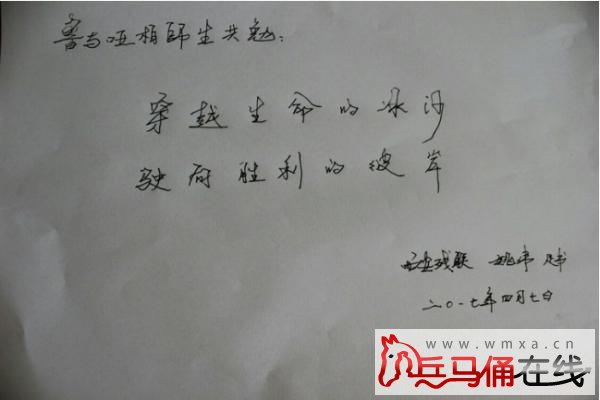 与哑柏師生共勉:
穿越生命的冰沙
驶向胜利的彼岸
残联 姚
二〇一七年四月七日
www.wmxa.cn
兵马俑在线